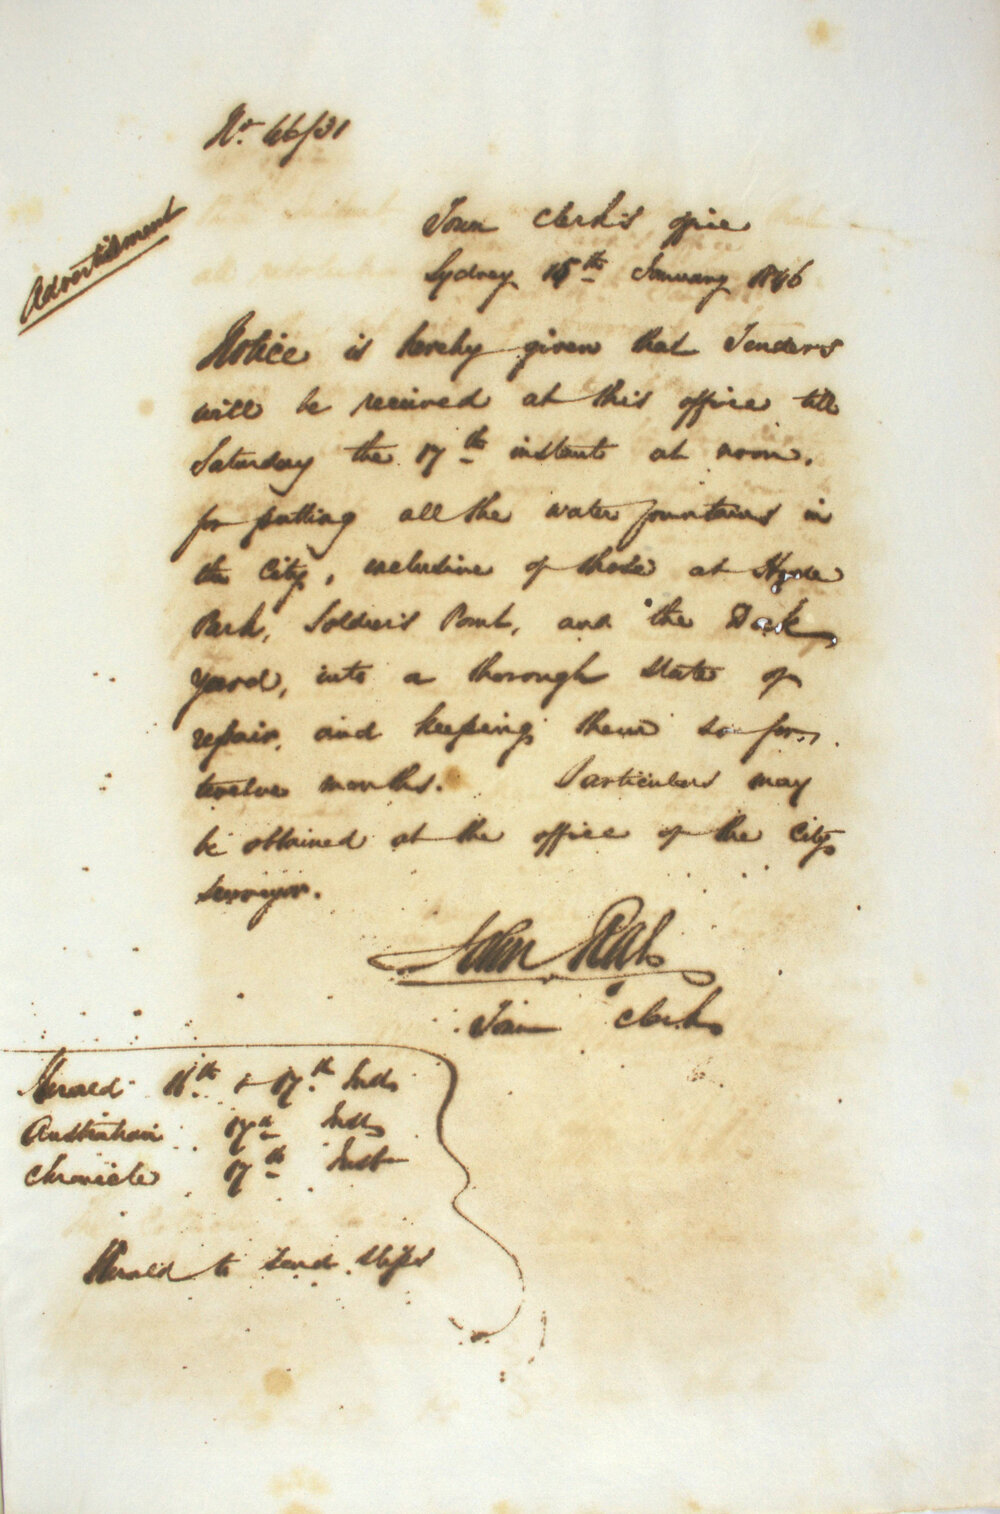 No. 46/31
Advertisement
Town Clerk's office
Sydney 15th January 1846
Notice is hereby given that Tenders
will be received at this office till
Saturday the 17th instant at noon,
for putting all the water fountains in
the City, inclusive of those at Hyde
Park, Soldier's Point, and the Dock
yard, into a thorough state of
repair, and keeping them so for
twelve months. Particulars may
be obtained at the office of the City
Surveyor.
John
Town Clerk
Herald 16th & 17th Inst
Australian 17th Inst
Chronicle 17th Inst
Herald to send slips